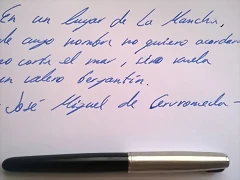 En un lugar de La Mancha,
de cuyo nombre no quiero acordar
no corta el mar, sino vuela
un velero bergantín.
- José Miguel de Cervromeda -